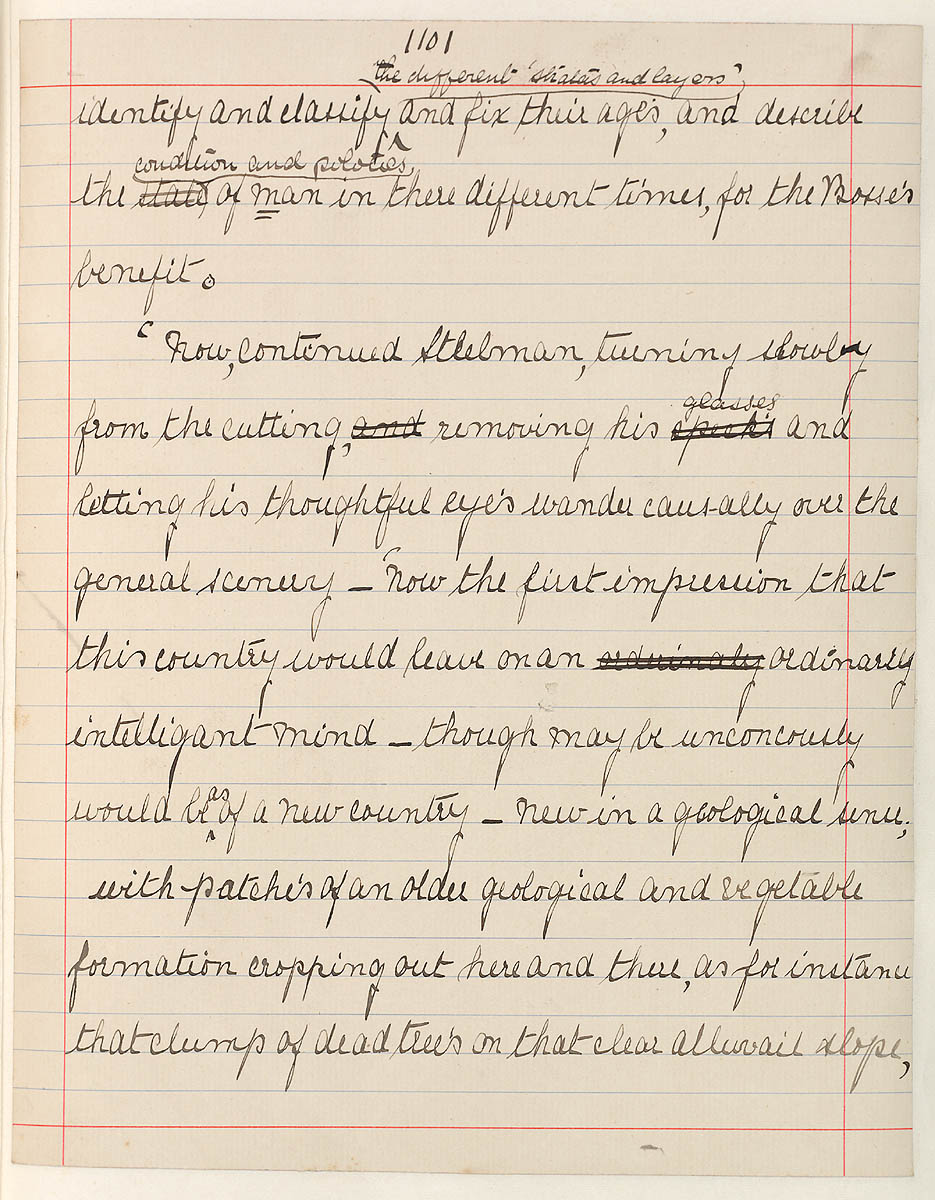 1101
the different "stratas and layers"
identify and classify and fix their age's, and describe
condition and polotics
the state, of man in there different times, for the Bosse's
benefit.
"Now, continued Steelman, turning slowly
glasses
from the cutting, and removing his speck's and
letting his thoughtful eye's wander causually over the
general scenery — "Now the first impression that
this country would leave on an orduinaly ordinarly
intelligant mind — though may be unconcously
as
would be of a new country — new in a geological sense;
with patche's of an older geological and vegetable
formation cropping out here and there, as for instance
that clump of dead tree's on that clear alluvail slope,